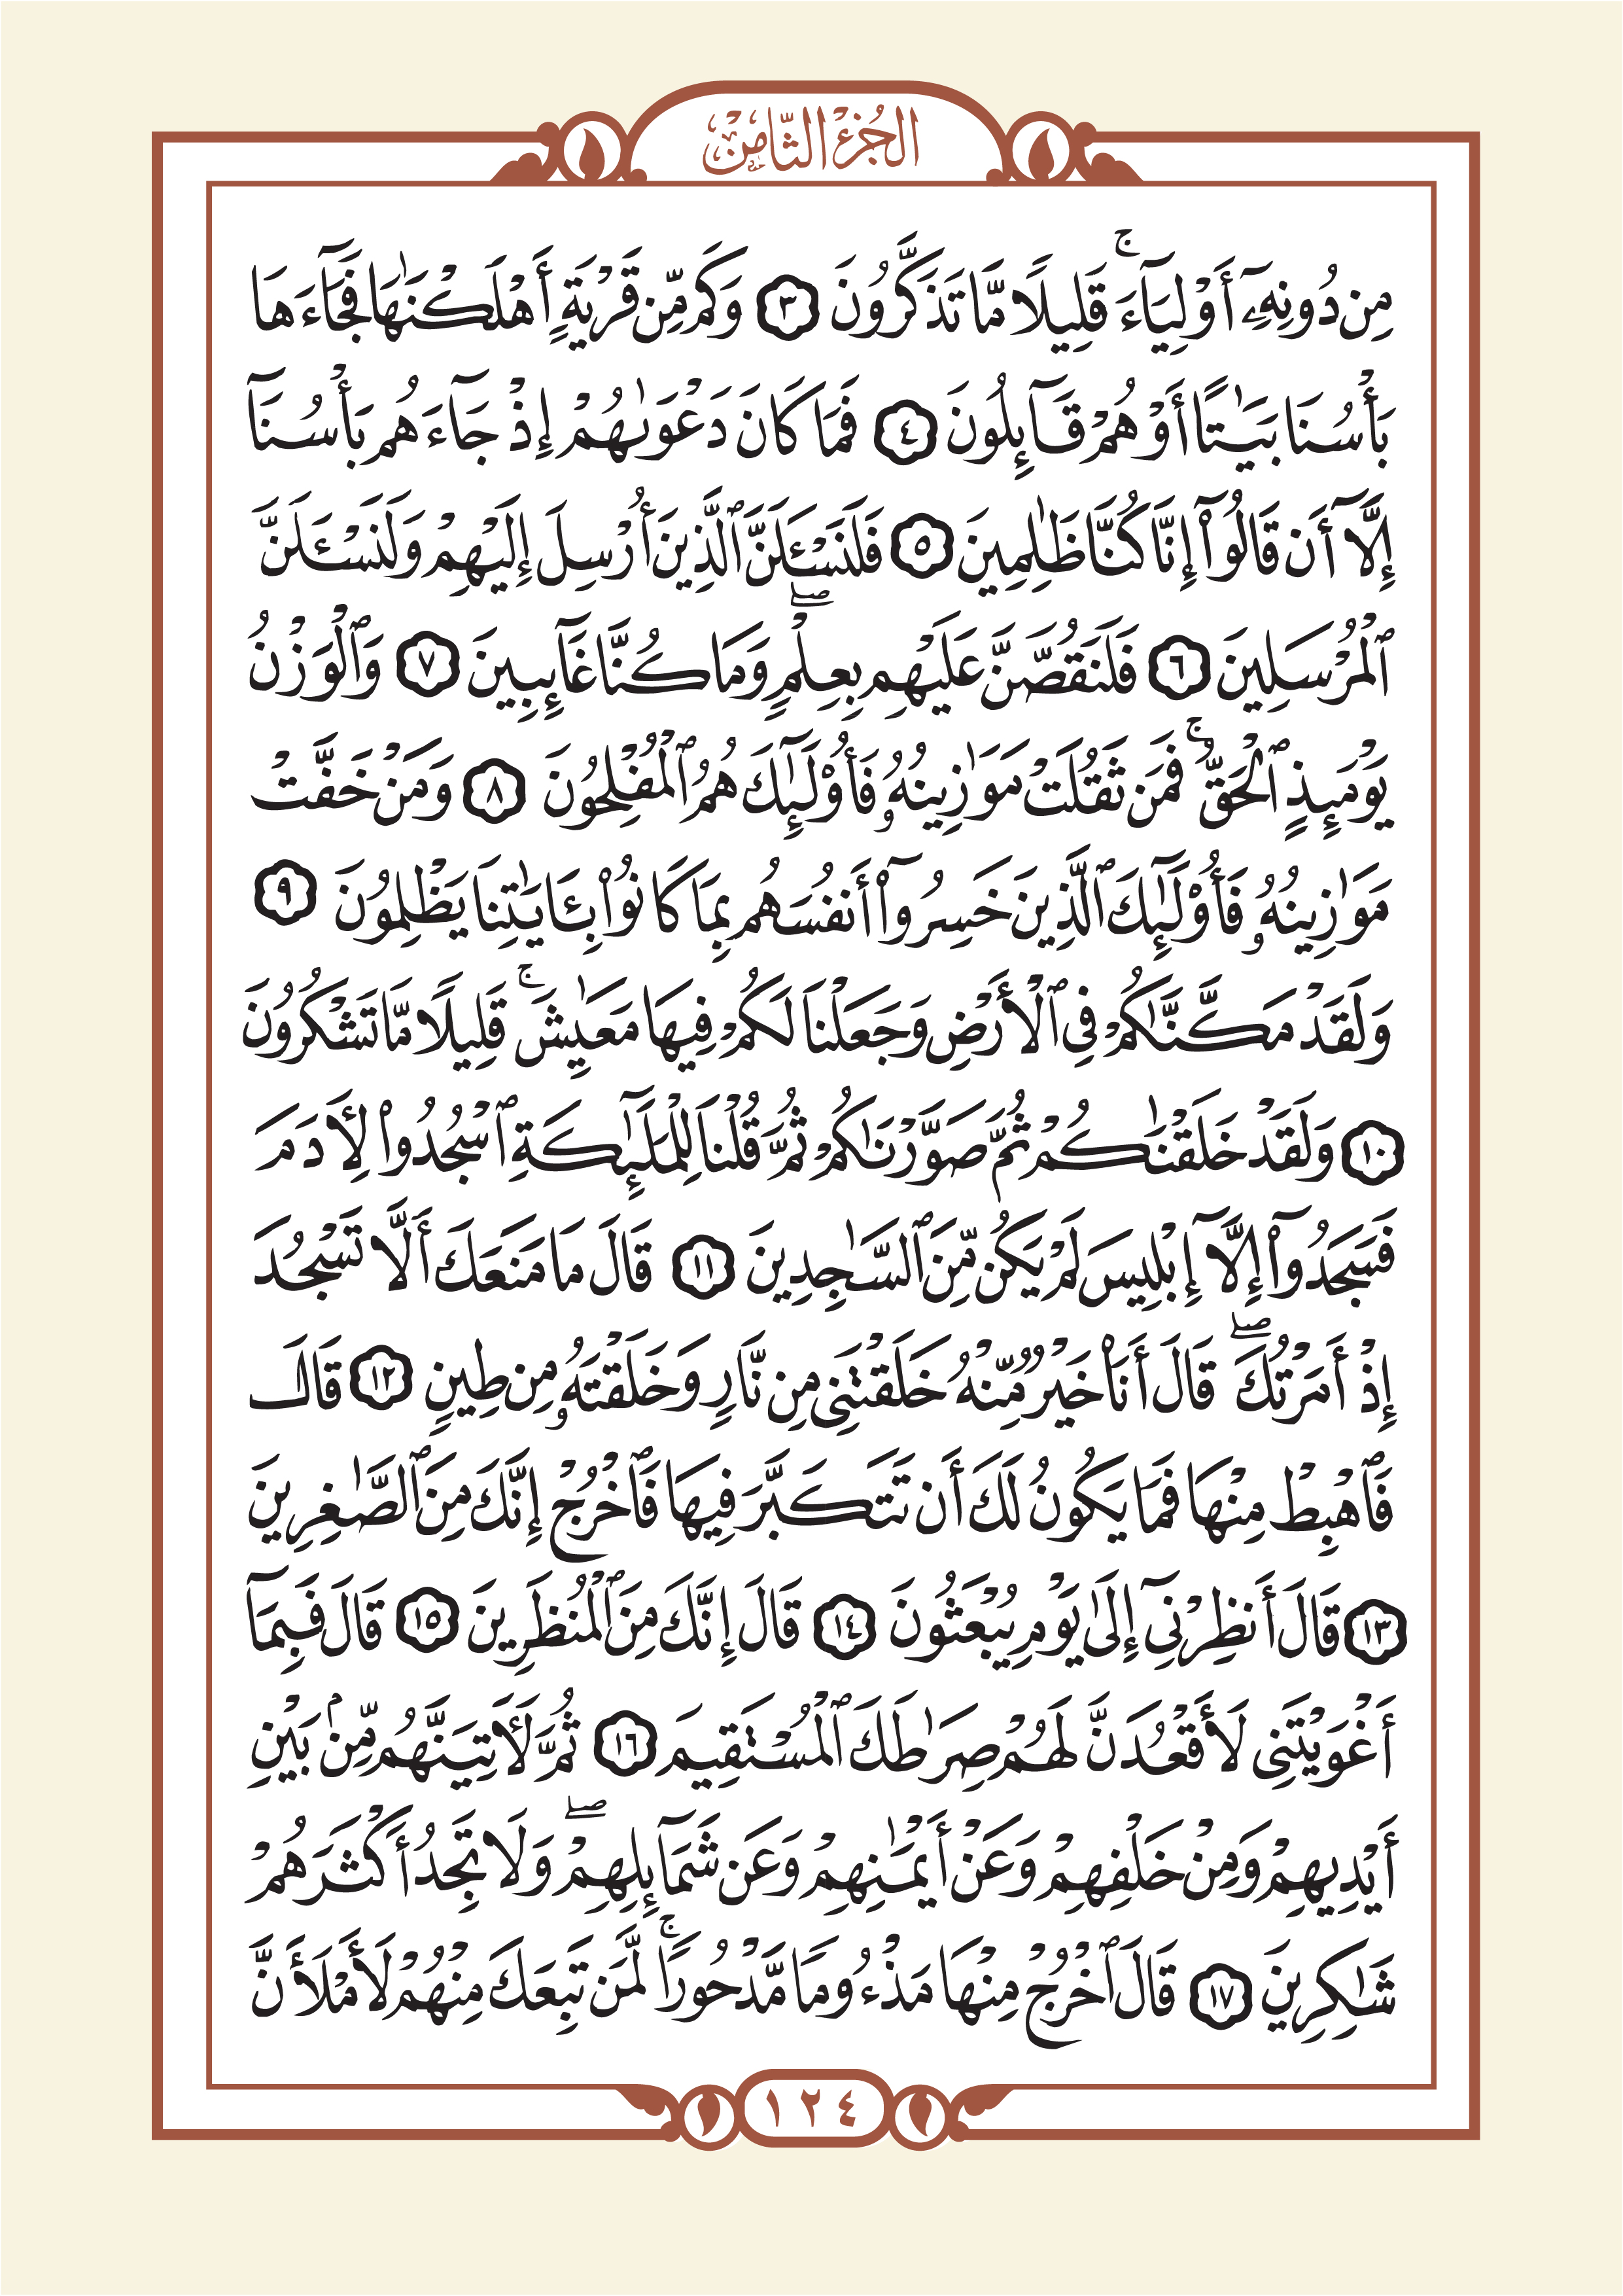 الجُزءُ الثَّامِنُ
مِن دُونِهِۦٓ أَوْلِيَآءَ ۚ قَلِيلًا مَّا تَذَكَّرُونَ ٣ وَكَم مِّن قَرْيَةٍ أَهْلَكْنَٰهَا فَجَآءَهَا
بَأْسُنَا بَيَٰتًا أَوْ هُمْ قَآئِلُونَ ٤ فَمَا كَانَ دَعْوَىٰهُمْ إِذْ جَآءَهُم بَأْسُنَآ
إِلَّآ أَن قَالُوٓا۟ إِنَّا كُنَّا ظَٰلِمِينَ ٥ فَلَنَسْـَٔلَنَّ ٱلَّذِينَ أُرْسِلَ إِلَيْهِمْ وَلَنَسْـَٔلَنَّ
ٱلْمُرْسَلِينَ ٦ فَلَنَقُصَّنَّ عَلَيْهِم بِعِلْمٍ ۖ وَمَا كُنَّا غَآئِبِينَ ٧ وَٱلْوَزْنُ
يَوْمَئِذٍ ٱلْحَقُّ ۚ فَمَن ثَقُلَتْ مَوَٰزِينُهُۥ فَأُو۟لَٰٓئِكَ هُمُ ٱلْمُفْلِحُونَ ٨ وَمَنْ خَفَّتْ
مَوَٰزِينُهُۥ فَأُو۟لَٰٓئِكَ ٱلَّذِينَ خَسِرُوٓا۟ أَنفُسَهُم بِمَا كَانُوا۟ بِـَٔايَٰتِنَا يَظْلِمُونَ ٩
وَلَقَدْ مَكَّنَّٰكُمْ فِى ٱلْأَرْضِ وَجَعَلْنَا لَكُمْ فِيهَا مَعَٰيِشَ ۚ قَلِيلًا مَّا تَشْكُرُونَ
١٠ وَلَقَدْ خَلَقْنَٰكُمْ ثُمَّ صَوَّرْنَٰكُمْ ثُمَّ قُلْنَا لِلْمَلَٰٓئِكَةِ ٱسْجُدُوا۟ لِـَٔادَمَ
فَسَجَدُوٓا۟ إِلَّآ إِبْلِيسَ لَمْ يَكُن مِّنَ ٱلسَّٰجِدِينَ ١١ قَالَ مَا مَنَعَكَ أَلَّا تَسْجُدَ
إِذْ أَمَرْتُكَ ۖ قَالَ أَنَا۠ خَيْرٌ مِّنْهُ خَلَقْتَنِى مِن نَّارٍ وَخَلَقْتَهُۥ مِن طِينٍ ١٢ قَالَ
فَٱهْبِطْ مِنْهَا فَمَا يَكُونُ لَكَ أَن تَتَكَبَّرَ فِيهَا فَٱخْرُجْ إِنَّكَ مِنَ ٱلصَّٰغِرِينَ
١٣ قَالَ أَنظِرْنِىٓ إِلَىٰ يَوْمِ يُبْعَثُونَ ١٤ قَالَ إِنَّكَ مِنَ ٱلْمُنظَرِينَ ١٥ قَالَ فَبِمَآ
أَغْوَيْتَنِى لَأَقْعُدَنَّ لَهُمْ صِرَٰطَكَ ٱلْمُسْتَقِيمَ ١٦ ثُمَّ لَـَٔاتِيَنَّهُم مِّنۢ بَيْنِ
أَيْدِيهِمْ وَمِنْ خَلْفِهِمْ وَعَنْ أَيْمَٰنِهِمْ وَعَن شَمَآئِلِهِمْ ۖ وَلَا تَجِدُ أَكْثَرَهُمْ
شَٰكِرِينَ ١٧ قَالَ ٱخْرُجْ مِنْهَا مَذْءُومًا مَّدْحُورًا ۚ لَّمَن تَبِعَكَ مِنْهُمْ لَأَمْلَأَنَّ
١٢٤